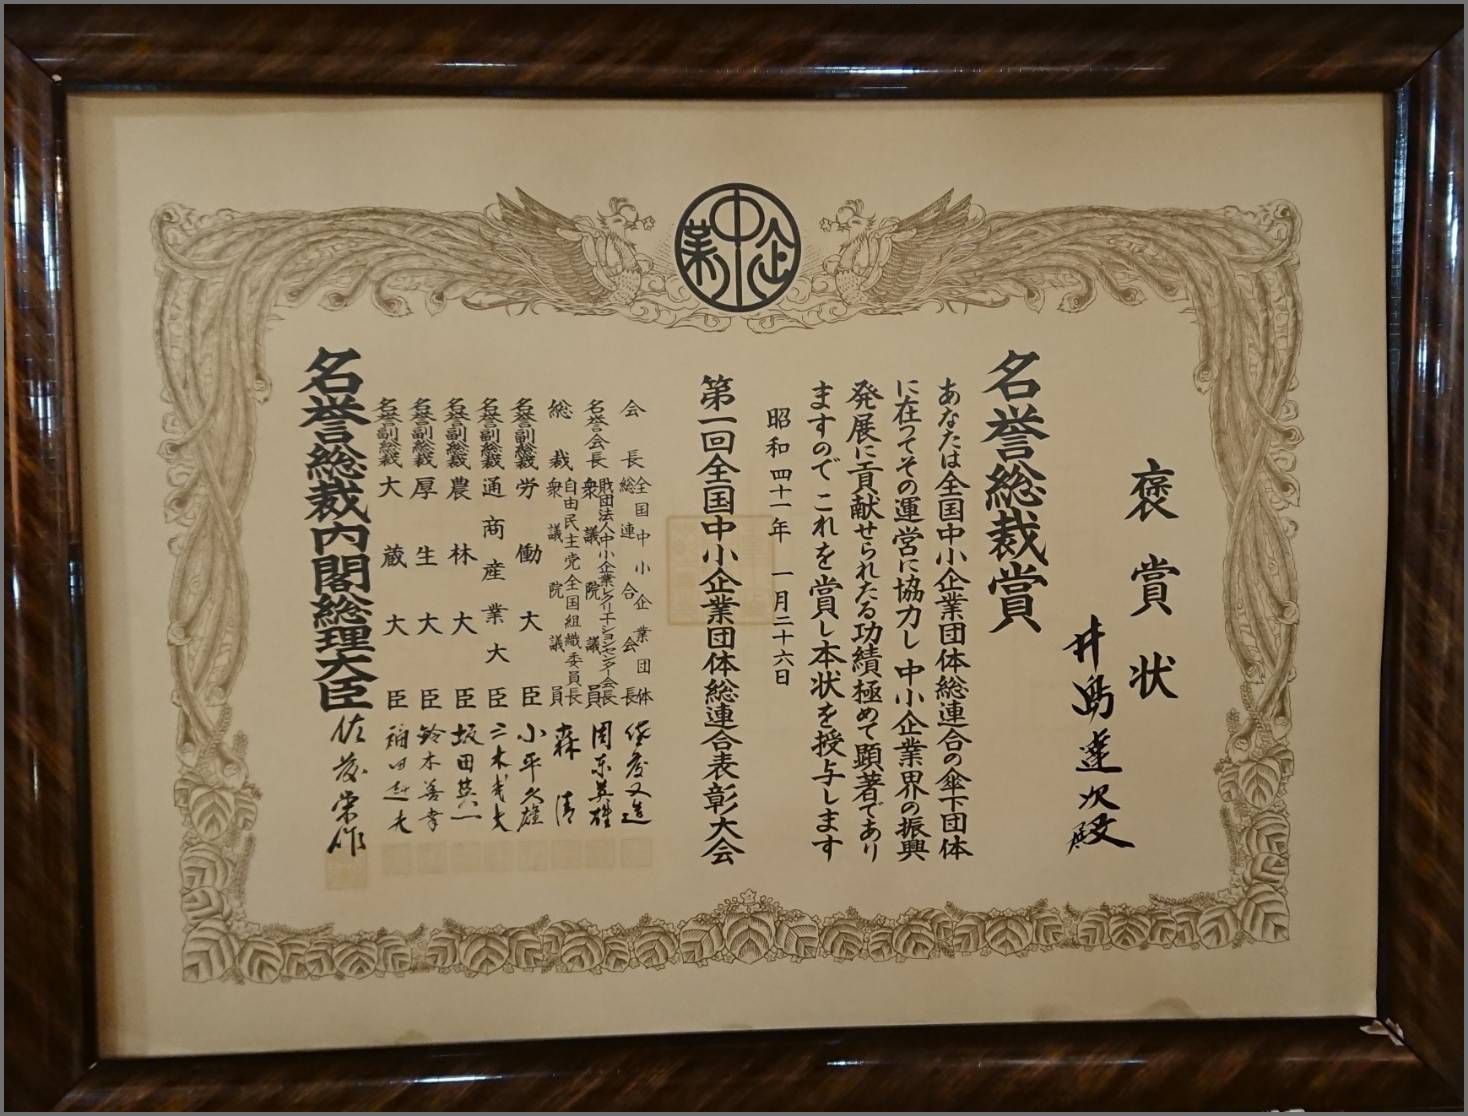 中企業
褒賞状
井島達次殿
名誉総裁賞
あなたは全国中小企業団体総連合の傘下団体
に在つてその運営に協力し中小企業界の振興
発展に貢献せられたる功績極めて顕著であり
ますのでこれを賞し本状を授与します
昭和四十一年一月二十六日
第一回全国中小企業団体総連合表彰大会
会長 全国中小企業団体総連合会長 佐藤又造
名誉会長 財団法人中小企業レクリエーションセンター会長 衆議院議員 周東英雄
総裁 自由民主党全国組織委員長 衆議院議員 森清
名誉副総裁 労働大臣 小平久雄
名誉副総裁 通商産業大臣 三木武夫
名誉副総裁 農林大臣 坂田英一
名誉副総裁 厚生大臣 鈴木善幸
名誉副総裁 大蔵大臣 福田赳夫
名誉総裁内閣総理大臣 佐藤栄作